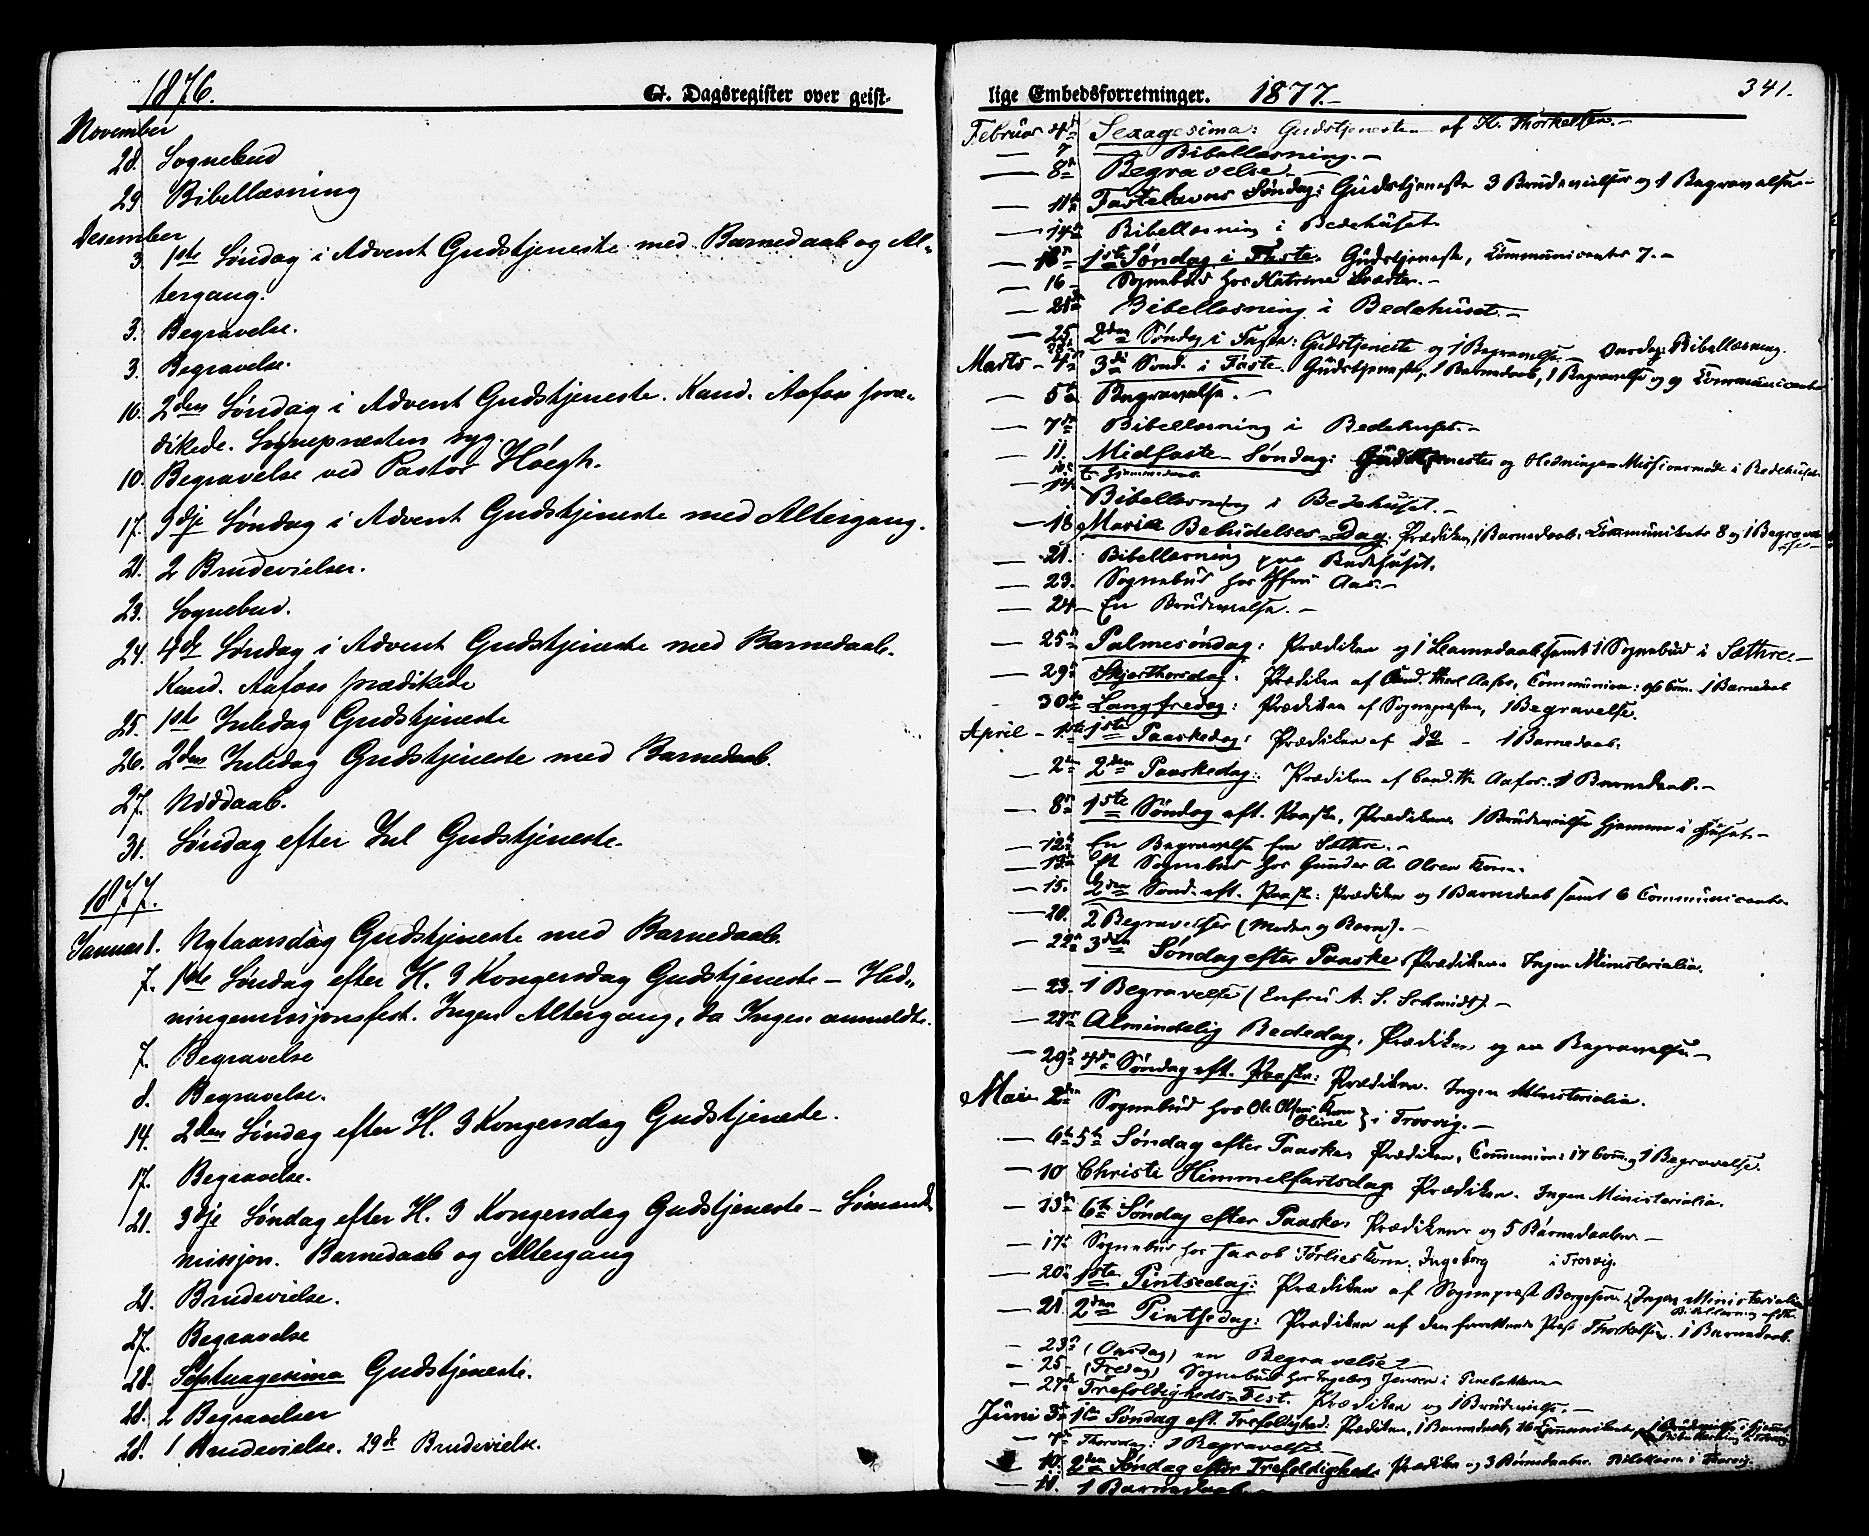 1876.
G. Dagsregister over geist-
November
28. Sognebud
29 Bibellæsning
Desember
3. 1ste Søndag i Advent Gudstjeneste med Barnedaab og Al-
tergang.
3. Begravelse.
3. Begravelse.
10. 2den Søndag i Advent Gudstjeneste. Kand. Aafoss præ-
dikede. Sognepræsten syg.
10. Begravelse ved Pastor Høegh.
17. 3dje Søndag i Advent Gudstjeneste med Altergang.
21. 2 Brudevielser.
23. Sognebud.
24. 4de Søndag i Advent Gudstjeneste med Barnedaab.
Kand. Aafoss prædikede
25. 1ste Juledag Gudstjeneste
26. 2den Juledag Gudstjeneste med Barnedaab.
27. Nøddaab.
31. Søndag efter Jul Gudstjeneste.
1877.
Januar 1. Nytaarsdag Gudstjeneste med Barnedaab.
7. 1ste Søndag efter H. 3 Kongersdag Gudstjeneste – Hed-
ningemissjonsfest. Ingen Altergang, da Ingen anmeldte.
7. Begravelse
8. Begravelse.
14. 2den Søndag efter H. 3 Kongersdag Gudstjeneste.
17. Begravelse.
21. 3dje Søndag efter H. 3 Kongersdag Gudstjeneste – Sømands
missjon. Barnedaab og Altergang
21. Brudevielse.
27. Begravelse
28. Septuagesima Gudstjeneste.
28. 2 Begravelser
28. 1 Brudevielse. 29de Brudevielse.
lige Embedsforretninger. 1877.
341.
Februar 4de Sexagesima: Gudstjenesten af K. Thorkelsen.
— 7 Bibellæsning.
— 8de Begravelse.
— 11te Fastelavns Søndag: Gudstjeneste 3 Brudevielser og 1 Begravelse
— 14de Bibellæsning i Bedehuset.
— 18de 1ste Søndag i Faste. Gudstjeneste, Communicanter 7.
— 16 Sognebud hos Katrine
— 21de Bibellæsning i Bedehuset.
— 25 2den Søndag i Faste: Gudstjeneste og 1 Begravelse. Onsdag: Bibellæsning.
Marts 4de 3die Sønd. i Faste. Gudstjeneste, 1 Barnedaab, 1 Begravelse og 9 Communicanter
— 5te Begravelse.
— 7de Bibellæsning i Bedehuset.
— 11. Midfaste-Søndag: Gudstjeneste og Hedninge-Missionsmøde i Bedehuset
En Hjemmedaab.
— 14. Bibellæsning i Bedehuset.
— 18 Mariæ Bebudelses-Dag: Prædiken, 1 Barnedaab, Communicanter 8 og 1 Begravelse
— 21. Bibellæsning paa Bedehuset.
— 23. Sognebud hos Aas.
— 24 En Brudevielse.
— 25de Palmesøndag: Prædiken og 1 Barnedaab samt 1 Sognebud i Sæthre.
— 29de Skjærthorsdag: Prædiken af Cand. theol Aafos, Communion: 96 Com. 1 Barnedaab
30te Langfredag: Prædiken af Sognepræsten, 1 Begravelse.
April 1ste 1ste Paaskedag: Prædiken af Do – 1 Barnedaab.
— 2den 2den Paaskedag: Prædiken af Cand. th. Aafos. 1 Barnedaab.
— 8de 1ste Søndag eft. Paaske, Prædiken. 1 Brudevielse hjemme i Huset.
— 12te En Begravelse fra Sæthre.
— 13de Et Sognebud hos Gunder A. Olsen Kone.
— 15. 2den Sønd. eft. Paaske: Prædiken og 1 Barnedaab samt 6 Communicanter
— 20. 2 Begravelser (Moder og Barn).
— 22de 3die Søndag efter Paaske. Prædiken. Ingen Ministerialia.
— 23. 1 Begravelse (Enfru A. S. Schmidt).
— 27de Almindelig Bededag. Prædiken og en Begravelse
— 29de 4de Søndag eft. Paaske: Prædiken. Ingen Ministerialia.
Mai 2den Sognebud hos Ole Olsens Kone Oline i Trosvig.
— 6te 5te Søndag efter Paaske. Prædiken, Communion: 17 Com. og 1 Begravelse.
— 10 Christi Himmelfartsdag Prædiken. Ingen Ministerialia.
— 13de 6te Søndag efter Paaske. Prædiken og 5 Børnedaaber.
— 17de Sognebud hos Jacob Kone. Ingeborg i Trosvig.
— 20de 1ste Pintsedag: Prædiken af Sognepræst Borgesen. (Ingen Ministerialia
Bibellæsning efter
— 21 2den Pintsedag: Prædiken af den Præst Thorkelsen. 1 Barnedaab.
— 23de (Onsdag) en Begravelse
— 25 (Fredag) Sognebud hos Ingeborg Jensen i
— 27de Trefoldigheds-Fest. Prædiken og 1 Brudevielse.
Juni 3die 1ste Søndag eft. Trefoldighed: Prædiken, 1 Barnedaab, 16 Communicanter, 1 Brudevielse i Hjemmet
Bibellæsning i Trosvig
— 7de Thorsdag: 1 Begravelse.
— 10. 2den Søndag efter Trefoldighed. Prædiken og 3 Børnedaaber. Bibellæsn i Trosvig.
— 11. 1 Barnedaab